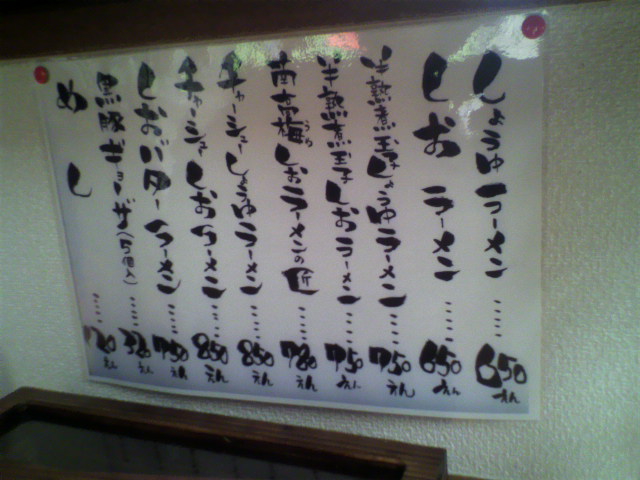 しょうゆラーメン ‥‥‥ 650えん
しおラーメン ‥‥‥ 650えん
半熟煮玉子しょうゆラーメン ‥‥‥ 750えん
半熟煮玉子しおラーメン ‥‥‥ 750えん
南高梅うめしおラーメンの匠 780えん
チャーシューしょうゆラーメン ‥‥‥ 850えん
チャーシューしおラーメン ‥‥‥ 850えん
しおバターラーメン ‥‥‥ 750えん
黒豚ギョーザ(5個入) ‥‥‥ えん
めし ‥‥‥ えん